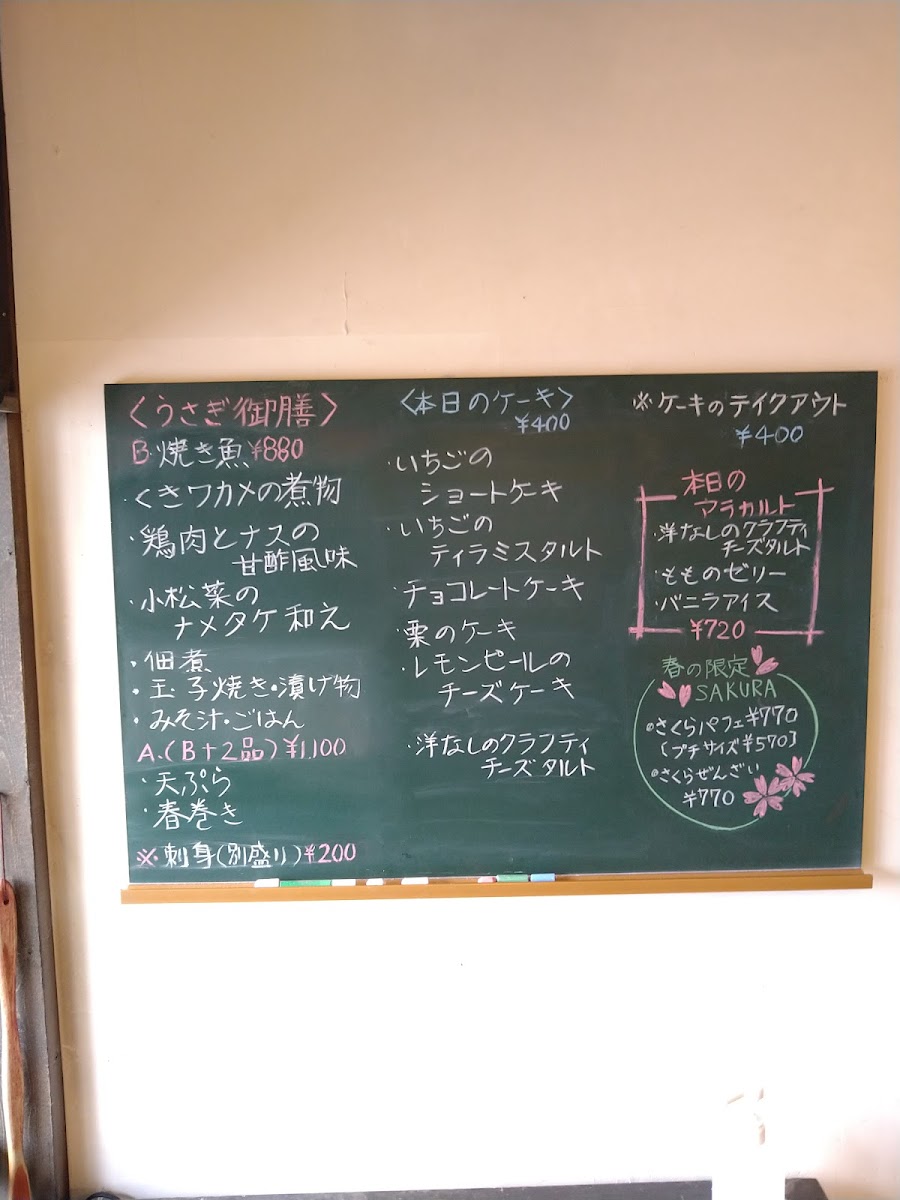 〈うさぎ御膳〉
B・焼き魚¥880
・くきワカメの煮物
・鶏肉とナスの
甘酢風味
・小松菜の
ナメタケ和え
・佃煮
・玉子焼き・漬け物
・みそ汁・ごはん
A.(B+2品)¥1,100
・天ぷら
・春巻き
※刺身(別盛り)¥200
〈本日のケーキ〉
¥400
・いちごの
ショートケーキ
・いちごの
ティラミスタルト
・チョコレートケーキ
・栗のケーキ
・レモンピールの
チーズケーキ
・洋なしのクラフティ
チーズタルト
※ケーキのテイクアウト
¥400
本日の
アラカルト
・洋なしのクラフティ
チーズタルト
・もものゼリー
・バニラアイス
¥720
春の限定
SAKURA
•さくらパフェ¥770
[プチサイズ¥570]
•さくらぜんざい
¥770